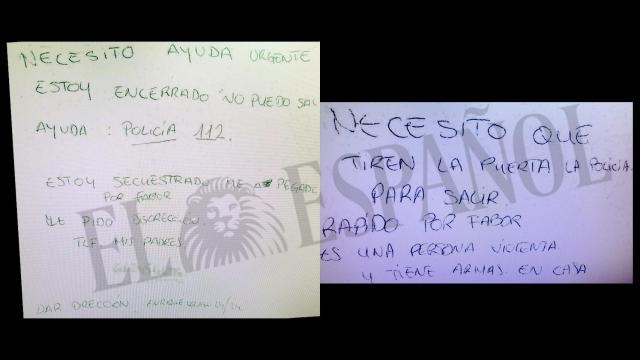 NECESITO AYUDA URGENTE
ESTOY ENCERRADO NO PUEDO SAL
AYUDA : POLICÍA 112.
ESTOY SECUESTRADO ME A PEGADO
POR FABOR
LE PIDO DISCRECCION
TLF MIS PADRES
DAR DRECCIÓN ENRIQUE
NECESITO QUE
TIREN LA PUERTA LA POLICIA
PARA SALIR
RAPIDO POR FABOR
ES UNA PERSONA VIOLENTA
Y TIENE ARMAS EN CASA
EL ESPAÑOL